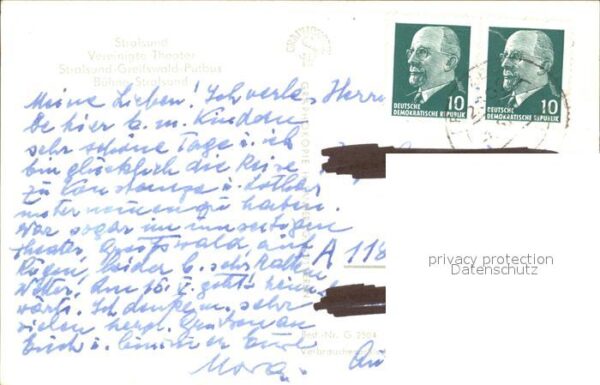 Stralsund
Vereinigte Theater
Stralsund-Greifswald-Putbus
Bühne Stralsund
10
DEUTSCHE
DEMOKRATISCHE REPUBLIK
10
DEUTSCHE
DEMOKRATISCHE REPUBLIK
Meine Lieben! Ich verle-
be hier b. m. Kindern
sehr schöne Tage u. ich
bin glücklich die Reise
zu Konstanze u. Lothar
unternommen zu haben.
War sogar im
Theater, Greifswald, auf
Rügen, leider b. sehr kaltem
Wetter. Am 15. geht's heim-
wärts. Ich denke m. sehr
vielen herzl. Grüßen an
Euch u. bin immer Eure
Mora.
Herrn
A 118
privacy protection
Datenschutz
Best.-Nr. G 2504
Verbraucher